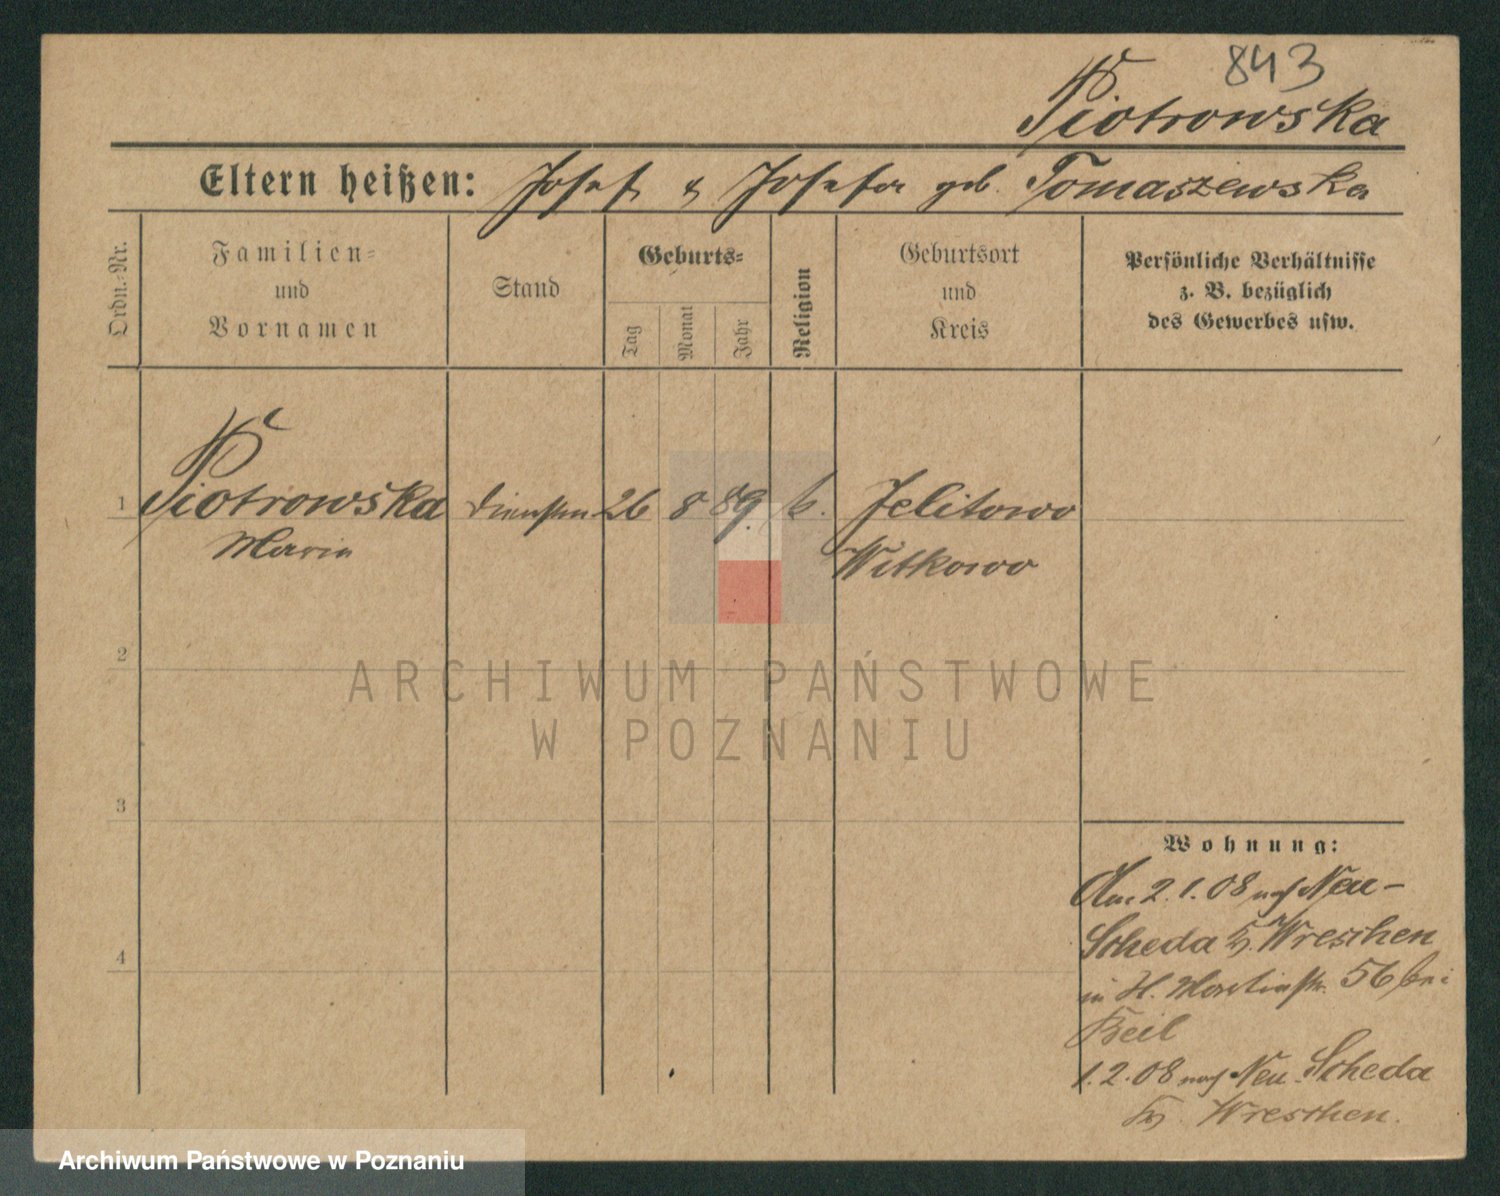 843
Piotrowska
Eltern heißen: Josef & Josefa geb. Tomaszewska
Ordn.-Nr.
Familien-
und
Vornamen
Stand
Geburts-
Tag
Monat
Jahr
Religion
Geburtsort
und
Kreis
Persönliche Verhältnisse
z. B. bezüglich
des Gewerbes usw.
1 Piotrowska 26 8 89. k. Jelitowo
Maria Witkowo
2
ARCHIWUM PAŃSTWOWE
W POZNANIU
3
Wohnung:
Am 2.1.08 nach Neu-
Scheda Kr. Wreschen
4
in H. Martinstr. 56 bei
Beil
1.2.08 nach Neu-Scheda
Kr. Wreschen.
Archiwum Państwowe w Poznaniu